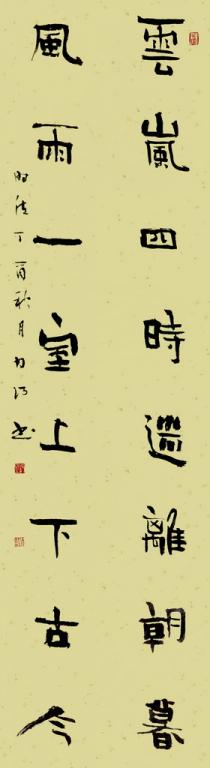 雲嵐四時離朝暮
風雨一室上下古今
丁酉秋月書